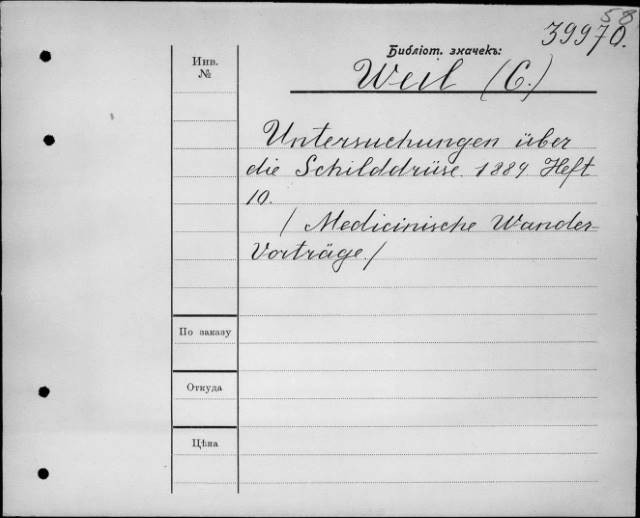 58
39970.
Библіот. значекъ:
Инв.
№
Weil (C.)
Untersuchungen über
die Schilddrüse. 1889 Heft
10.
/ Medicinische Wander-
Vorträge./
По заказу
Откуда
Цѣна